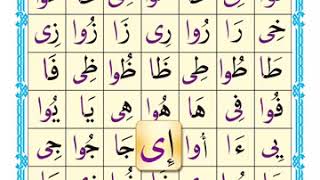 خِى رَا رُوا رِى زَا زُوا زِى
طَا طُوا طِى ظَا ظُوا ظِى فَا
فُوا فِى هَا هُوا هِى يَا يُوا
يِى ءَا أُوا إِى جَا جُوا جِى